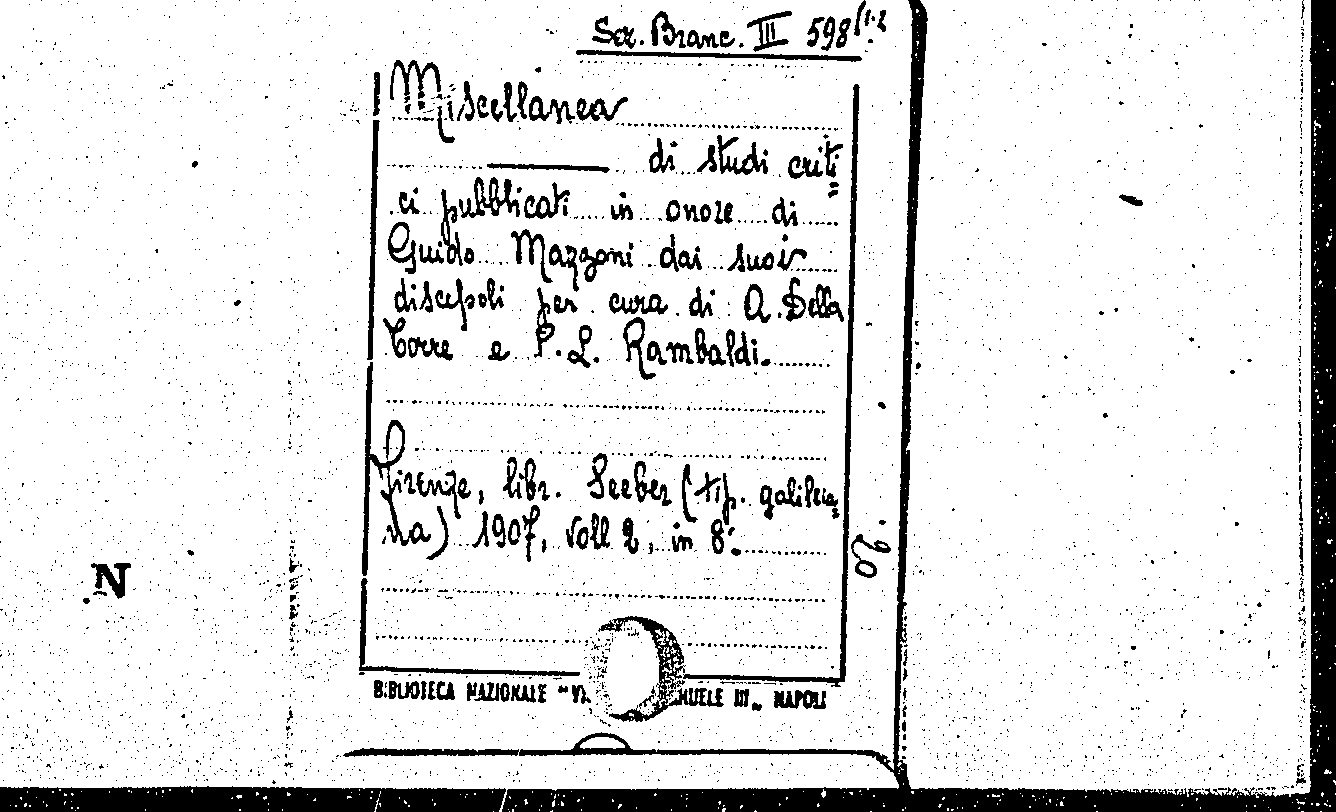 Sez. Branc. III 598 (1-2
Miscellanea
di studi criti=
ci pubblicati in onore di
Guido Mazzoni dai suoi
discepoli per cura di A. Della
Torre e P. L. Rambaldi.
Firenze, libr. Seeber (tip. galileia=
na) 1907, voll 2, in 8°.
20
N
BIBLIOTECA NAZIONALE "VI MUELE III„ NAPOLI